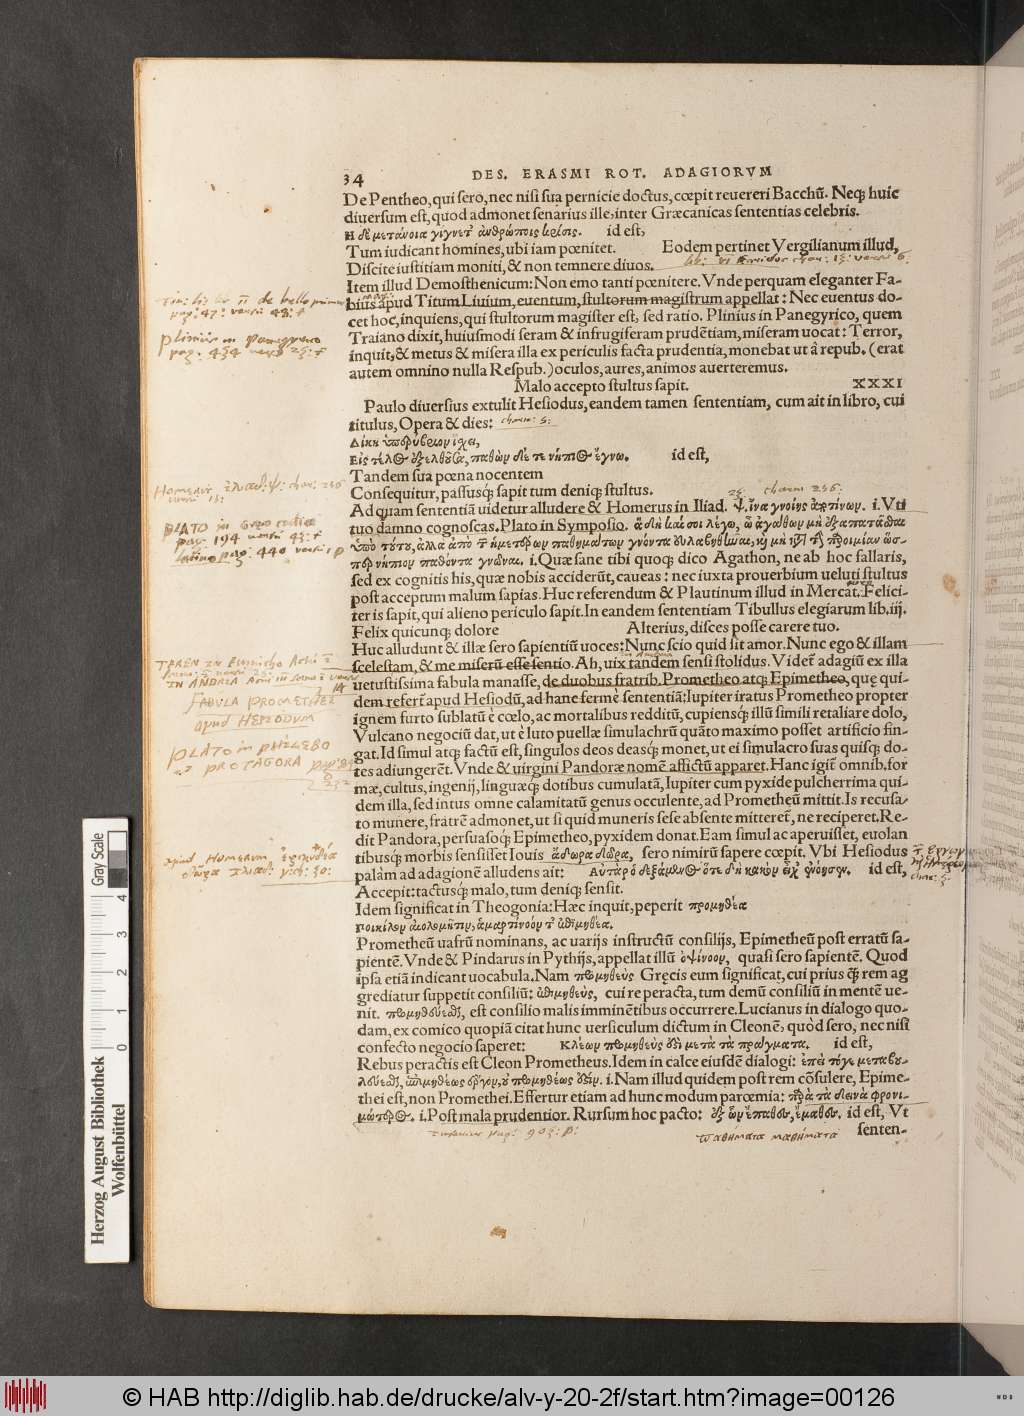 34 DES. ERASMI ROT. ADAGIORVM
De Pentheo, qui sero, nec nisi sua pernicie doctus, cœpit reuereri Bacchũ. Neqꝫ huic
diuersum est, quod admonet senarius ille, inter Græcanicas sententias celebris.
Η δὲ μετάνοια γίγνετ' ἀνθρώποις κρίσις. id est,
Tum iudicant homines, ubi iam pœnitet. Eodem pertinet Vergilianum illud,
Discite iustitiam moniti, & non temnere diuos.
Item illud Demosthenicum: Non emo tanti pœnitere. Vnde perquam eleganter Fa-
bius apud Titum Liuium, euentum, stultorum magistrum appellat: Nec euentus do-
cet hoc, inquiens, qui stultorum magister est, sed ratio. Plinius in Panegyrico, quem
Traiano dixit, huiusmodi seram & infrugiferam prudẽtiam, miseram uocat: Terror,
inquit, & metus & misera illa ex periculis facta prudentia, monebat ut à repub. (erat
autem omnino nulla Respub.) oculos, aures, animos auerteremus.
Malo accepto stultus sapit. XXXI
Paulo diuersius extulit Hesiodus, eandem tamen sententiam, cum ait in libro, cui
titulus, Opera & dies:
Δίκη ὑπὲρ ὕβριος ἴσχει,
Εἰς τέλος ἐξελθοῦσα, παθὼν δέ τε νήπιος ἔγνω. id est,
Tandem sua pœna nocentem
Consequitur, passusq́ꝫ sapit tum deniqꝫ stultus.
Ad quam sententiã uidetur alludere & Homerus in Iliad. ψ. ἵνα γνοίης ἀκτίνων. i. Vti
tuo damno cognoscas. Plato in Symposio. ἃ δὴ καί σοι λέγω, ὦ ἀγάθων μὴ ἐξαπατᾶσθαι
ὑπὸ τούτου, ἀλλὰ ἀπὸ τῶν ἡμετέρων παθημάτων γνόντα εὐλαβηθῆναι, καὶ μὴ κατὰ τὴν παροιμίαν ὥσ-
περ νήπιον παθόντα γνῶναι. i. Quæ sane tibi quoqꝫ dico Agathon, ne ab hoc fallaris,
sed ex cognitis his, quæ nobis acciderũt, caueas: nec iuxta prouerbium ueluti stultus
post acceptum malum sapias. Huc referendum & Plautinum illud in Mercat. Felici-
ter is sapit, qui alieno periculo sapit. In eandem sententiam Tibullus elegiarum lib. iij.
Felix quicunqꝫ dolore Alterius, disces posse carere tuo.
Huc alludunt & illæ sero sapientiũ uoces: Nunc scio quid sit amor. Nunc ego & illam
scelestam, & me miserũ esse sentio. Ab, uix tandem sensi stolidus. Videt᷑ adagiũ ex illa
uetustissima fabula manasse, de duobus fratrib. Prometheo atqꝫ Epimetheo, quę qui-
dem refert᷑ apud Hesiodũ, ad hanc fermè sententiã: Iupiter iratus Prometheo propter
ignem furto sublatũ è cœlo, ac mortalibus redditũ, cupiensq́ꝫ illũ simili retaliare dolo,
Vulcano negociũ dat, ut è luto puellæ simulachrũ quãto maximo posset artificio fin-
gat. Id simul atqꝫ factũ est, singulos deos deasq́ꝫ monet, ut ei simulacro suas quisqꝫ do-
tes adiungerẽt. Vnde & uirgini Pandoræ nomẽ affictũ apparet. Hanc igit᷑ omnib. for
mæ, cultus, ingenij, linguæqꝫ dotibus cumulatã, Iupiter cum pyxide pulcherrima qui-
dem illa, sed intus omne calamitatũ genus occulente, ad Prometheũ mittit. Is recusa-
to munere, fratrẽ admonet, ut si quid muneris sese absente mitteret᷑, ne reciperet. Re-
dit Pandora, persuasoqꝫ Epimetheo, pyxidem donat. Eam simul ac aperuisset, euolan
tibusqꝫ morbis sensisset Iouis ἄδωρα δῶρα, sero nimirũ sapere cœpit. Vbi Hesiodus
palàm ad adagionẽ alludens ait: Αὐτὰρ ὁ δεξάμενος ὅτε δὴ κακὸν εἶχ' ἐνόησεν. id est,
Accepit: tactusq́ꝫ malo, tum deniqꝫ sensit.
Idem significat in Theogonia: Hæc inquit, peperit προμηθέα
Ποικίλον αἰολόμητιν, ἁμαρτίνοόν τ' ἐπιμηθέα.
Prometheũ uafrũ nominans, ac uarijs instructũ consilijs, Epimetheũ post erratũ sa-
pientẽ. Vnde & Pindarus in Pythijs, appellat illũ ὀψίνοον, quasi sero sapientẽ. Quod
ipsa etiã indicant uocabula. Nam προμηθεὺς Gręcis eum significat, cui prius q̃ꝫ rem ag
grediatur suppetit consiliũ: ἐπιμηθεὺς, cui re peracta, tum demũ consiliũ in mentẽ ue-
nit. προμηθεύεσθαι, est consilio malis imminẽtibus occurrere. Lucianus in dialogo quo-
dam, ex comico quopiã citat hunc uersiculum dictum in Cleonẽ, quòd sero, nec nisi
confecto negocio saperet: Κλέων προμηθεύς ἐστι μετὰ τὰ πράγματα. id est,
Rebus peractis est Cleon Prometheus. Idem in calce eiusdẽ dialogi: ἐπεὶ τόγε μεταβου-
λεύεσθαι, ἐπιμηθέως ἔργον, οὐ προμηθέως ἐστίν. i. Nam illud quidem post rem cõsulere, Epime-
thei est, non Promethei. Effertur etiam ad hunc modum parœmia: παρὰ τὰ δεινὰ φρονι-
μώτερος. i. Post mala prudentior. Rursum hoc pacto: ἐξ ὧν ἔπαθες, ἔμαθες. id est, Vt
senten-
plinius in panegyrico
PLATO in Greco codice
pag. 194
latino pag. 440
TEREN IN Eunucho
IN ANDRIA
FABULA PROMETHEI
apud HESIODUM
PLATO in PHILEBO
PROTAGORA
apud Homerum
παθήματα μαθήματα
Herzog August Bibliothek
Wolfenbüttel
Gray Scale
0 1 2 3 4
© HAB http://diglib.hab.de/drucke/alv-y-20-2f/start.htm?image=00126